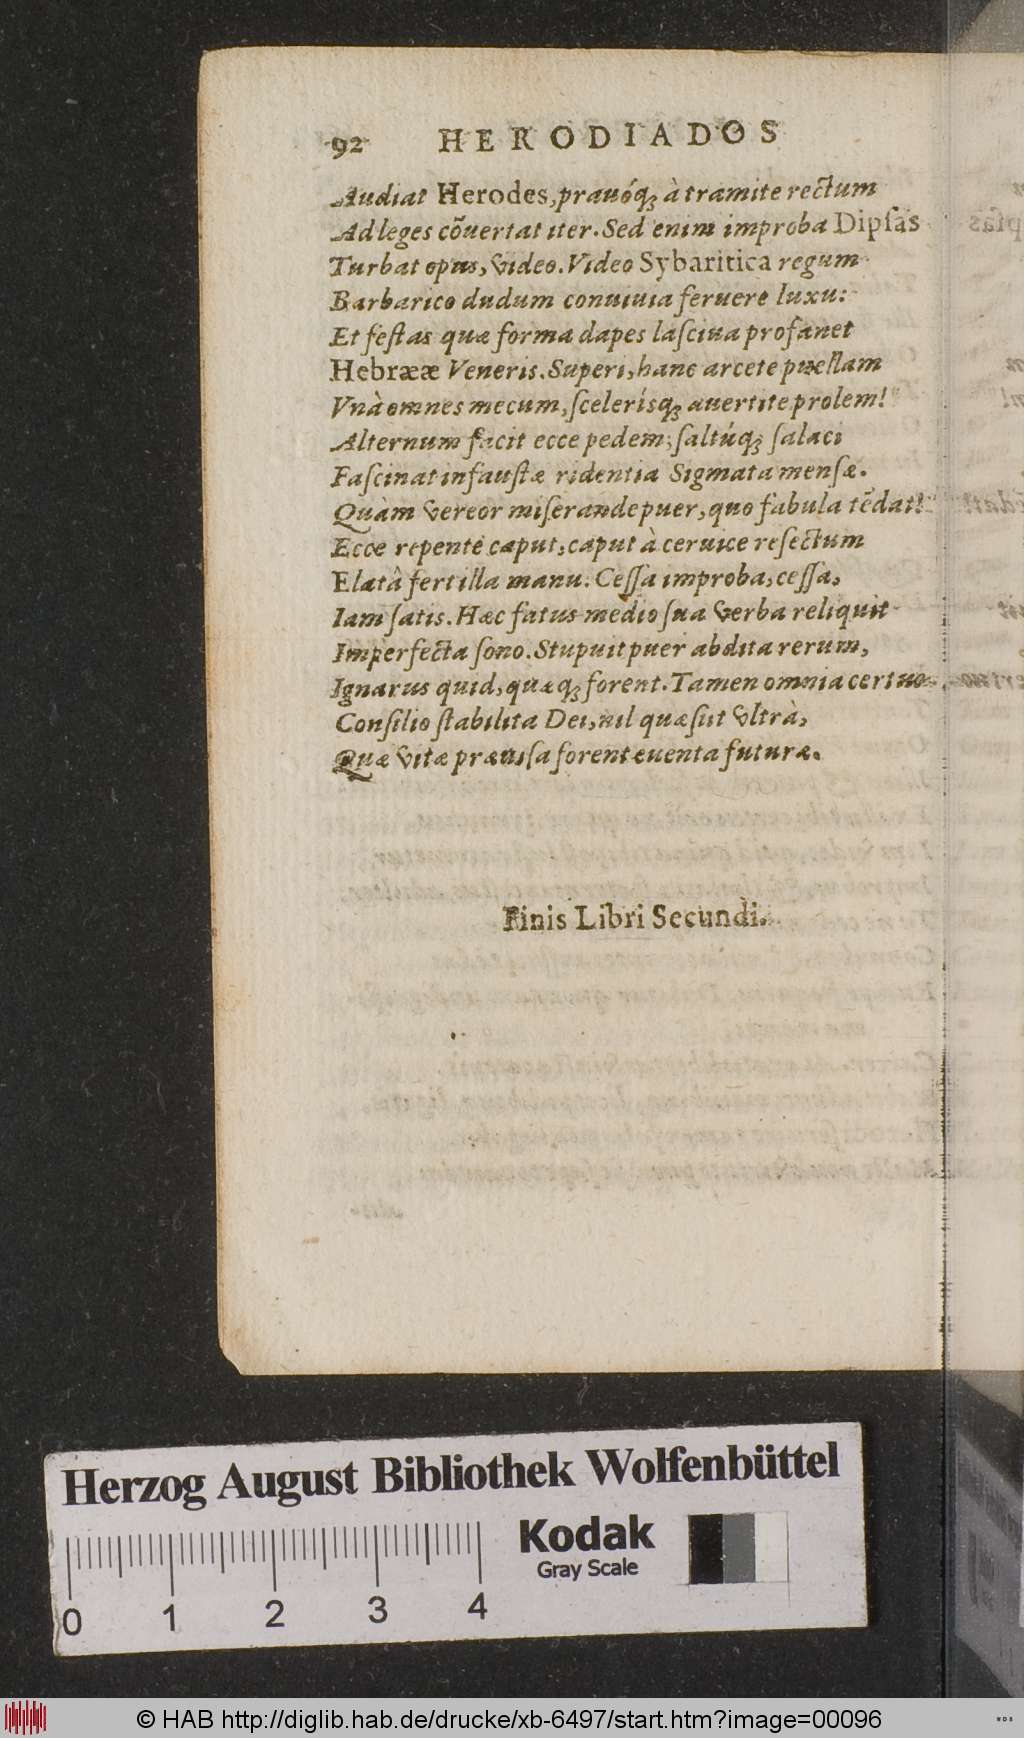 92 HERODIADOS
Audiat Herodes, pravóq; à tramite rectum
Ad leges cõvertat iter. Sed enim improba Dipſas
Turbat opus, video. Video Sybaritica regum
Barbarico dudum conuiuia feruere luxu:
Et feſtas quæ forma dapes laſciua profanet
Hebrææ Veneris. Superi, hanc arcete puellam
Vnà omnes mecum, ſceleriſq; auertite prolem!
Alternum facit ecce pedem, ſaltúq; ſalaci
Faſcinat infauſtæ ridentia Sigmata menſæ.
Quàm vereor miſerande puer, quo fabula tẽdat!
Ecce repentè caput, caput à ceruice reſectum
Elatâ fert illa manu. Ceſſa improba, ceſſa,
Iam ſatis. Hæc fatus medio ſua verba reliquit
Imperfecta ſono. Stupuit puer abdita rerum,
Ignarus quid, quæq; forent. Tamen omnia certo
Conſilio ſtabilita Dei, nil quæſiit vltrà,
Quæ vitæ præuiſa forent euenta futuræ.
Finis Libri Secundi.
Herzog August Bibliothek Wolfenbüttel
Kodak
Gray Scale
0 1 2 3 4
© HAB http://diglib.hab.de/drucke/xb-6497/start.htm?image=00096